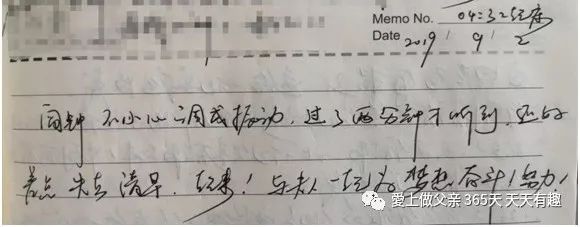 Memo No. 04:32起床
Date 2019 / 9 / 2
闹钟不小心调成振动,过了两分钟才听到,还好
差点失去清早,起来!与夫人一起为梦想奋斗!努力!
爱上做父亲 365天 天天有趣